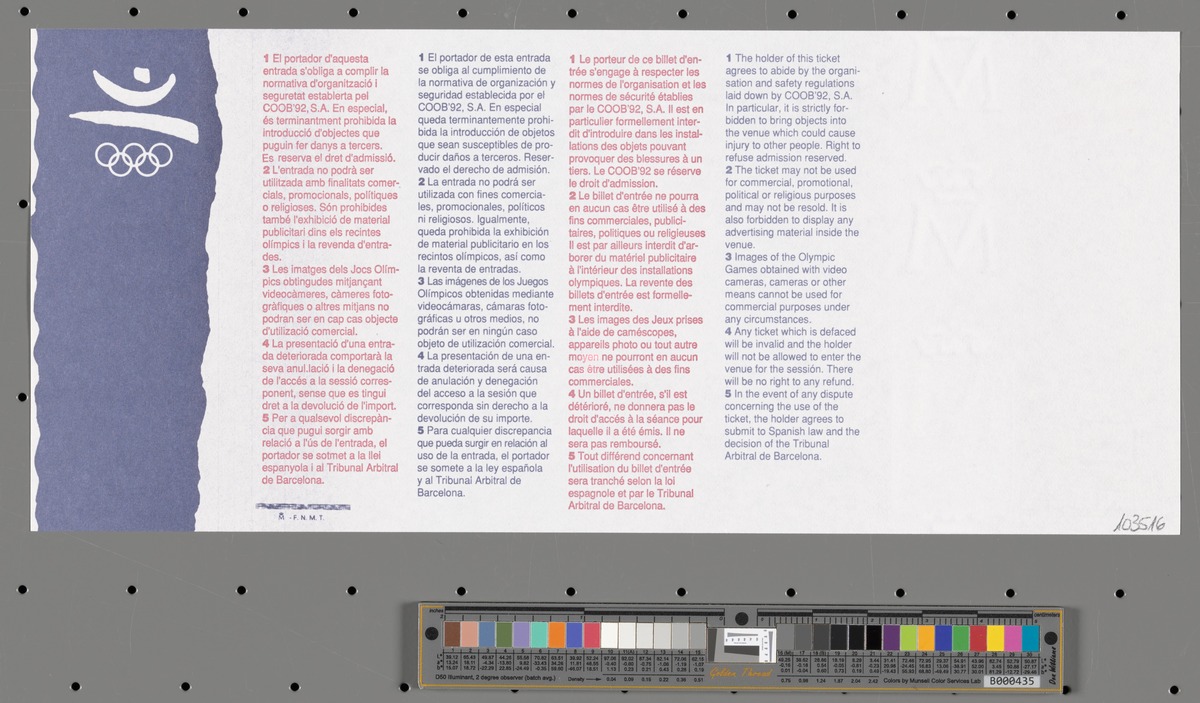 1 El portador d'aquesta
entrada s'obliga a complir la
normativa d'organització i
seguretat establerta pel
COOB'92, S.A. En especial,
és terminantment prohibida la
introducció d'objectes que
puguin fer danys a tercers.
Es reserva el dret d'admissió.
2 L'entrada no podrà ser
utilitzada amb finalitats comer-
cials, promocionals, polítiques
o religioses. Són prohibides
també l'exhibició de material
publicitari dins els recintes
olímpics i la revenda d'entra-
des.
3 Les imatges dels Jocs Olím-
pics obtingudes mitjançant
videocàmeres, càmeres foto-
gràfiques o altres mitjans no
podran ser en cap cas objecte
d'utilització comercial.
4 La presentació d'una entra-
da deteriorada comportarà la
seva anul.lació i la denegació
de l'accés a la sessió corres-
ponent, sense que es tingui
dret a la devolució de l'import.
5 Per a qualsevol discrepàn-
cia que pugui sorgir amb
relació a l'ús de l'entrada, el
portador se sotmet a la llei
espanyola i al Tribunal Arbitral
de Barcelona.
M - F. N. M. T.
1 El portador de esta entrada
se obliga al cumplimiento de
la normativa de organización y
seguridad establecida por el
COOB'92, S.A. En especial
queda terminantemente prohi-
bida la introducción de objetos
que sean susceptibles de pro-
ducir daños a terceros. Reser-
vado el derecho de admisión.
2 La entrada no podrá ser
utilizada con fines comercia-
les, promocionales, políticos
ni religiosos. Igualmente,
queda prohibida la exhibición
de material publicitario en los
recintos olímpicos, así como
la reventa de entradas.
3 Las imágenes de los Juegos
Olímpicos obtenidas mediante
videocámaras, cámaras foto-
gráficas u otros medios, no
podrán ser en ningún caso
objeto de utilización comercial.
4 La presentación de una en-
trada deteriorada será causa
de anulación y denegación
del acceso a la sesión que
corresponda sin derecho a la
devolución de su importe.
5 Para cualquier discrepancia
que pueda surgir en relación al
uso de la entrada, el portador
se somete a la ley española
y al Tribunal Arbitral de
Barcelona.
1 Le porteur de ce billet d'en-
trée s'engage à respecter les
normes de l'organisation et les
normes de sécurité établies
par le COOB'92, S.A. Il est en
particulier formellement inter-
dit d'introduire dans les instal-
lations des objets pouvant
provoquer des blessures à un
tiers. Le COOB'92 se réserve
le droit d'admission.
2 Le billet d'entrée ne pourra
en aucun cas être utilisé à des
fins commerciales, publici-
taires, politiques ou religieuses
Il est par ailleurs interdit d'ar-
borer du matériel publicitaire
à l'intérieur des installations
olympiques. La revente des
billets d'entrée est formelle-
ment interdite.
3 Les images des Jeux prises
à l'aide de caméscopes,
appareils photo ou tout autre
moyen ne pourront en aucun
cas être utilisées à des fins
commerciales.
4 Un billet d'entrée, s'il est
détérioré, ne donnera pas le
droit d'accés à la séance pour
laquelle il a été émis. Il ne
sera pas remboursé.
5 Tout différend concernant
l'utilisation du billet d'entrée
sera tranché selon la loi
espagnole et par le Tribunal
Arbitral de Barcelona.
1 The holder of this ticket
agrees to abide by the organi-
sation and safety regulations
laid down by COOB'92, S.A.
In particular, it is strictly for-
bidden to bring objects into
the venue which could cause
injury to other people. Right to
refuse admission reserved.
2 The ticket may not be used
for commercial, promotional,
political or religious purposes
and may not be resold. It is
also forbidden to display any
advertising material inside the
venue.
3 Images of the Olympic
Games obtained with video
cameras, cameras or other
means cannot be used for
commercial purposes under
any circumstances.
4 Any ticket which is defaced
will be invalid and the holder
will not be allowed to enter the
venue for the sessión. There
will be no right to any refund.
5 In the event of any dispute
concerning the use of the
ticket, the holder agrees to
submit to Spanish law and the
decision of the Tribunal
Arbitral de Barcelona.
103516
D50 Illuminant, 2 degree observer (batch avg.)
Density
0.04 0.09 0.15 0.22 0.36 0.51
Golden Thread
0.75 0.98 1.24 1.67 2.04 2.42
Colors by Munsell Color Services Lab
B000435